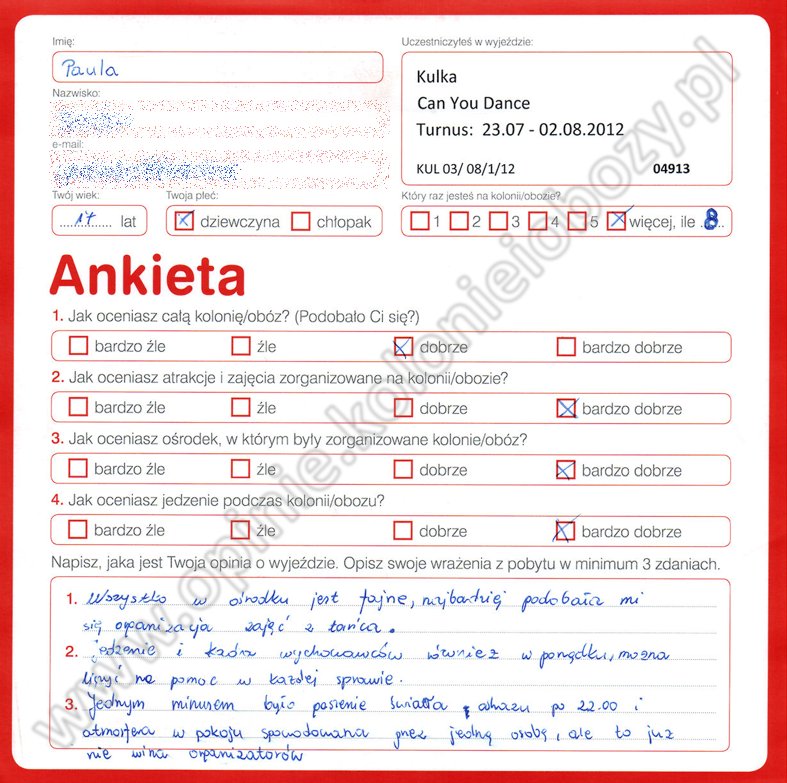 Imię:
Paula
Uczestniczyłeś w wyjeździe:
Kulka
Can You Dance
Turnus: 23.07 - 02.08.2012
KUL 03/ 08/1/12 04913
Nazwisko:
e-mail:
Twój wiek:
17 lat
Twoja płeć:
dziewczyna chłopak
Który raz jesteś na kolonii/obozie?
1 2 3 4 5 więcej, ile 8
Ankieta
1. Jak oceniasz całą kolonię/obóz? (Podobało Ci się?)
bardzo źle źle dobrze bardzo dobrze
2. Jak oceniasz atrakcje i zajęcia zorganizowane na kolonii/obozie?
bardzo źle źle dobrze bardzo dobrze
3. Jak oceniasz ośrodek, w którym były zorganizowane kolonie/obóz?
bardzo źle źle dobrze bardzo dobrze
4. Jak oceniasz jedzenie podczas kolonii/obozu?
bardzo źle źle dobrze bardzo dobrze
Napisz, jaka jest Twoja opinia o wyjeździe. Opisz swoje wrażenia z pobytu w minimum 3 zdaniach.
1. Wszystko w ośrodku jest fajne, najbardziej podobała mi
się organizacja zajęć z tańca.
2. jedzenie i kadra wychowawców również w porządku, można
liczyć na pomoc w każdej sprawie.
3. Jednym minusem było gaszenie światła od razu po 22.00 i
atmosfera w pokoju spowodowana przez jedną osobę, ale to już
nie wina organizatorów
www.opinie.kolonieiobozy.pl